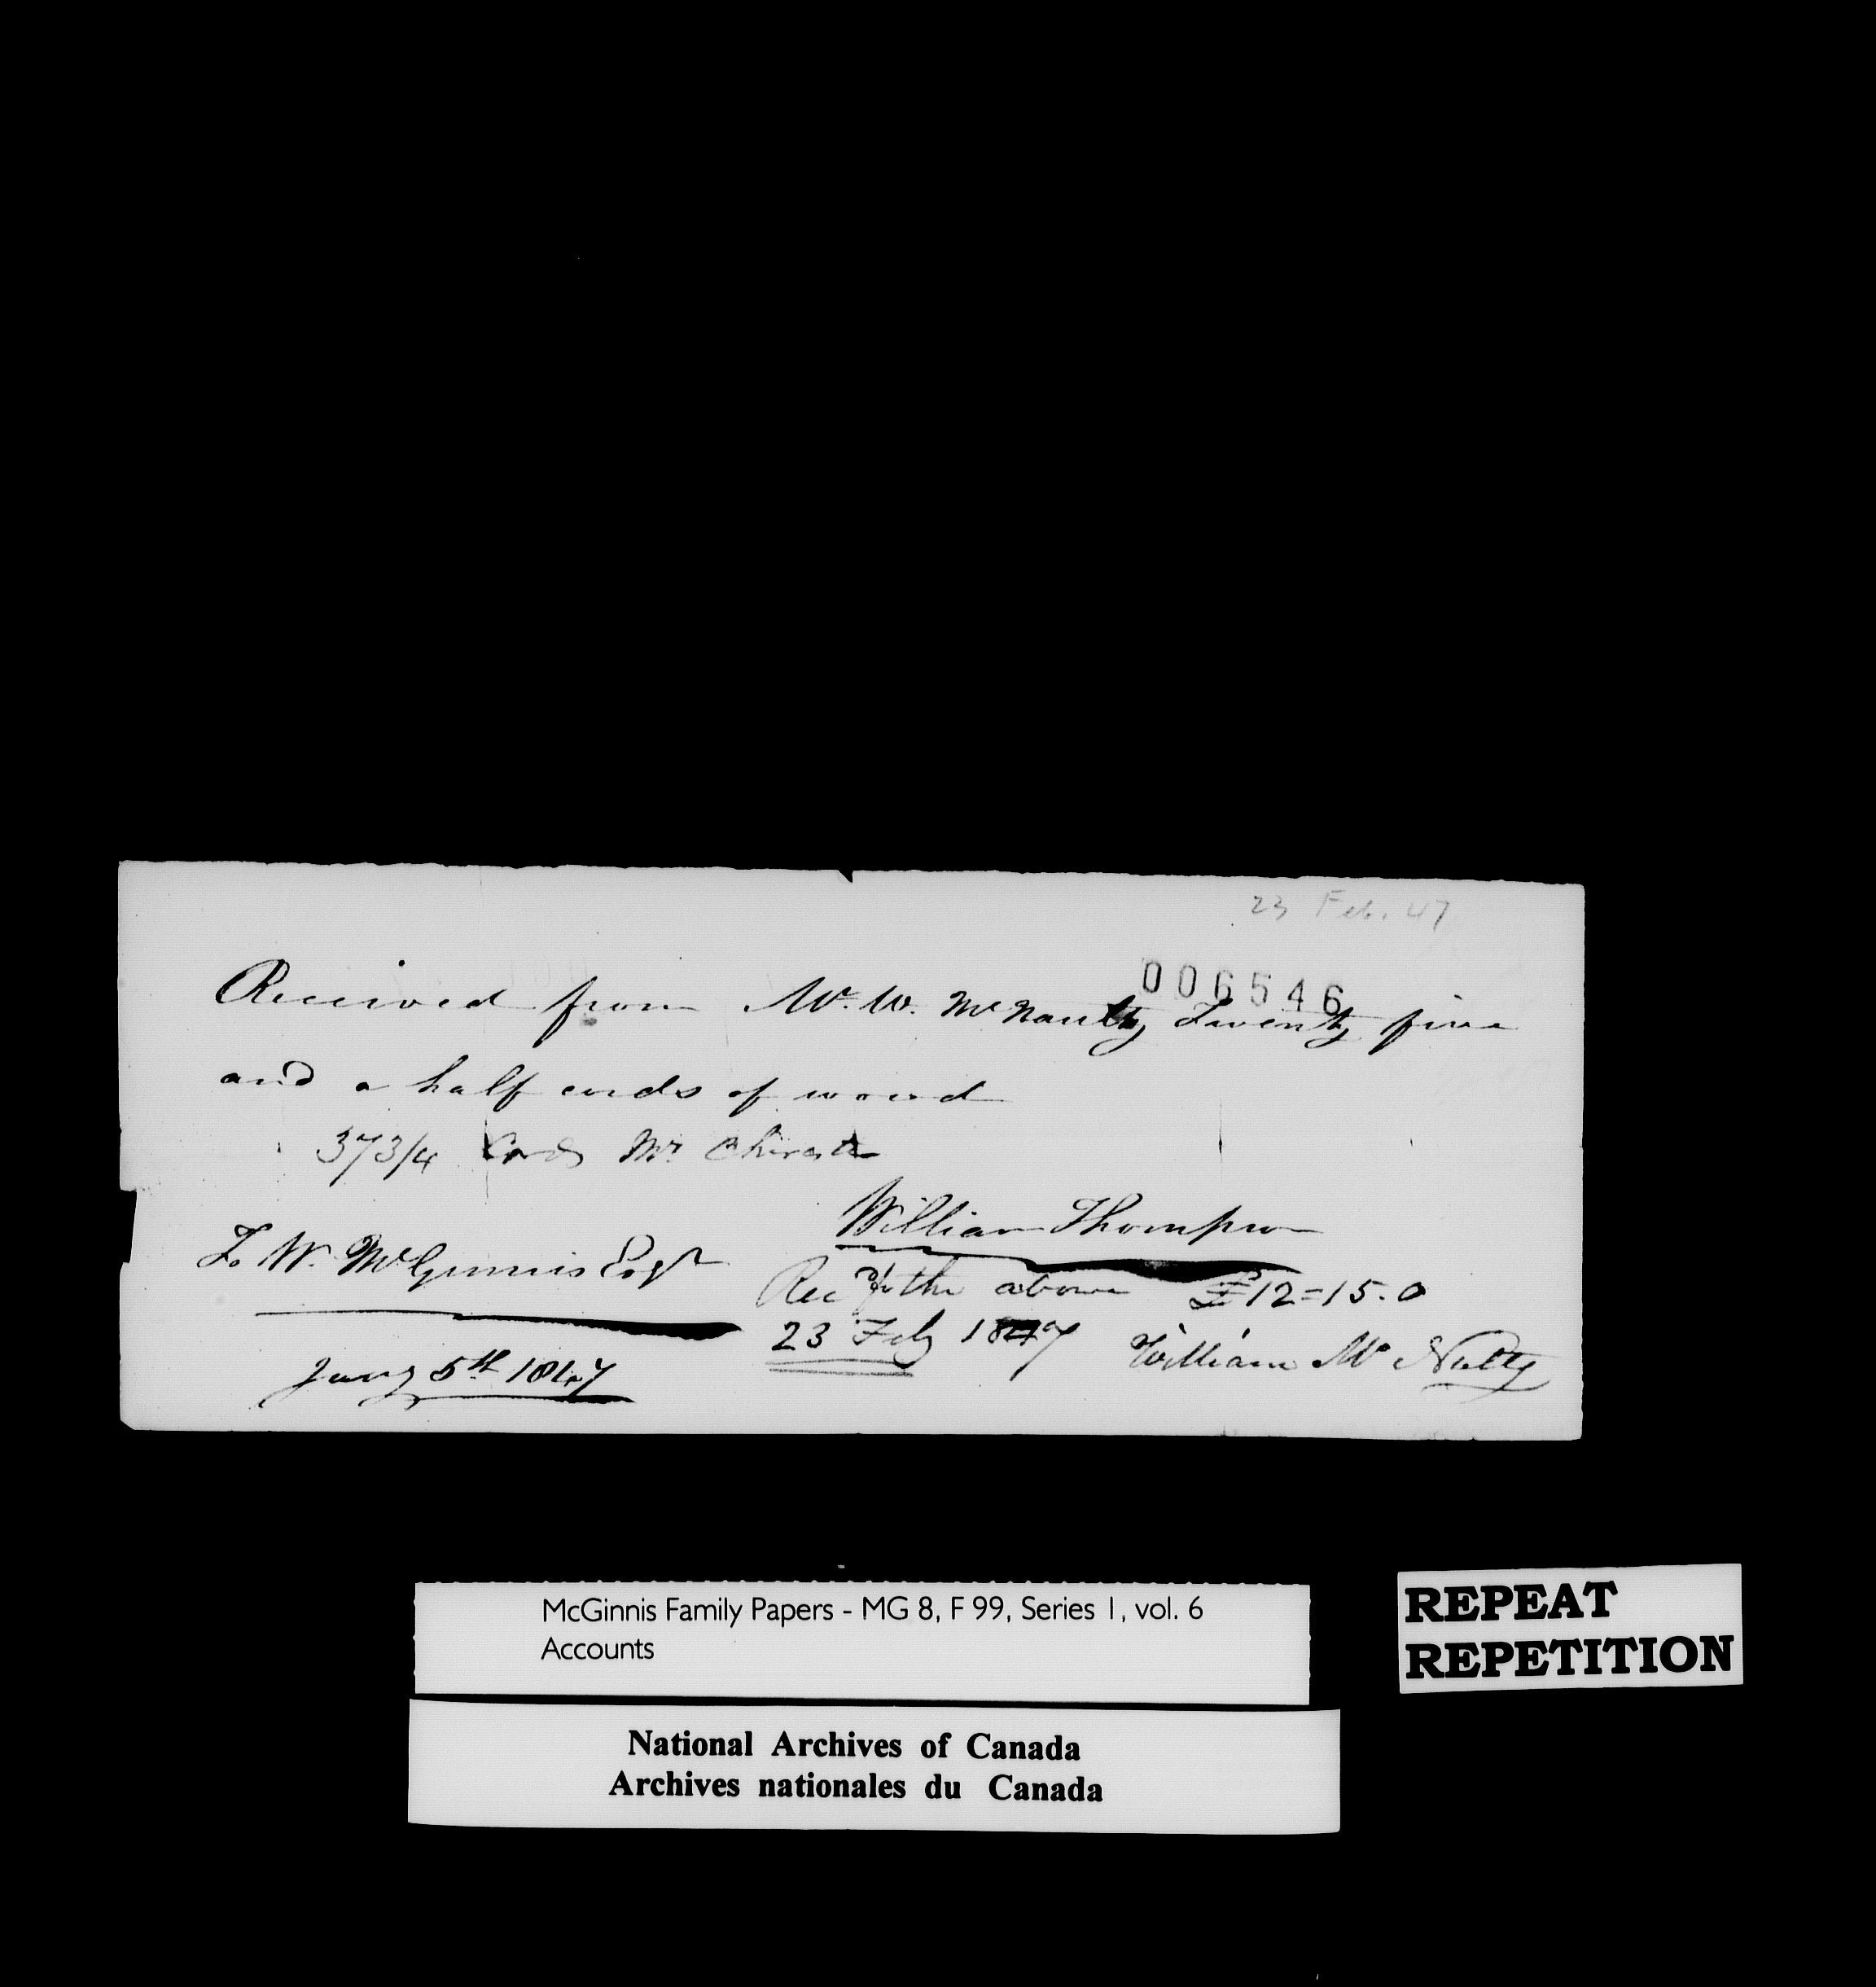 23 Feb. 47
006546
Received from Mr. W. McNaulty Twenty five
and a half cords of wood
37 3/4 Cords Mr
William Thompson
To W. McGinnis Esqr
Recd the above £12=15.0
23 Feby 1847 William Mc Nulty
Jany 5th 1847
McGinnis Family Papers - MG 8, F 99, Series 1, vol. 6
Accounts
REPEAT
REPETITION
National Archives of Canada
Archives nationales du Canada